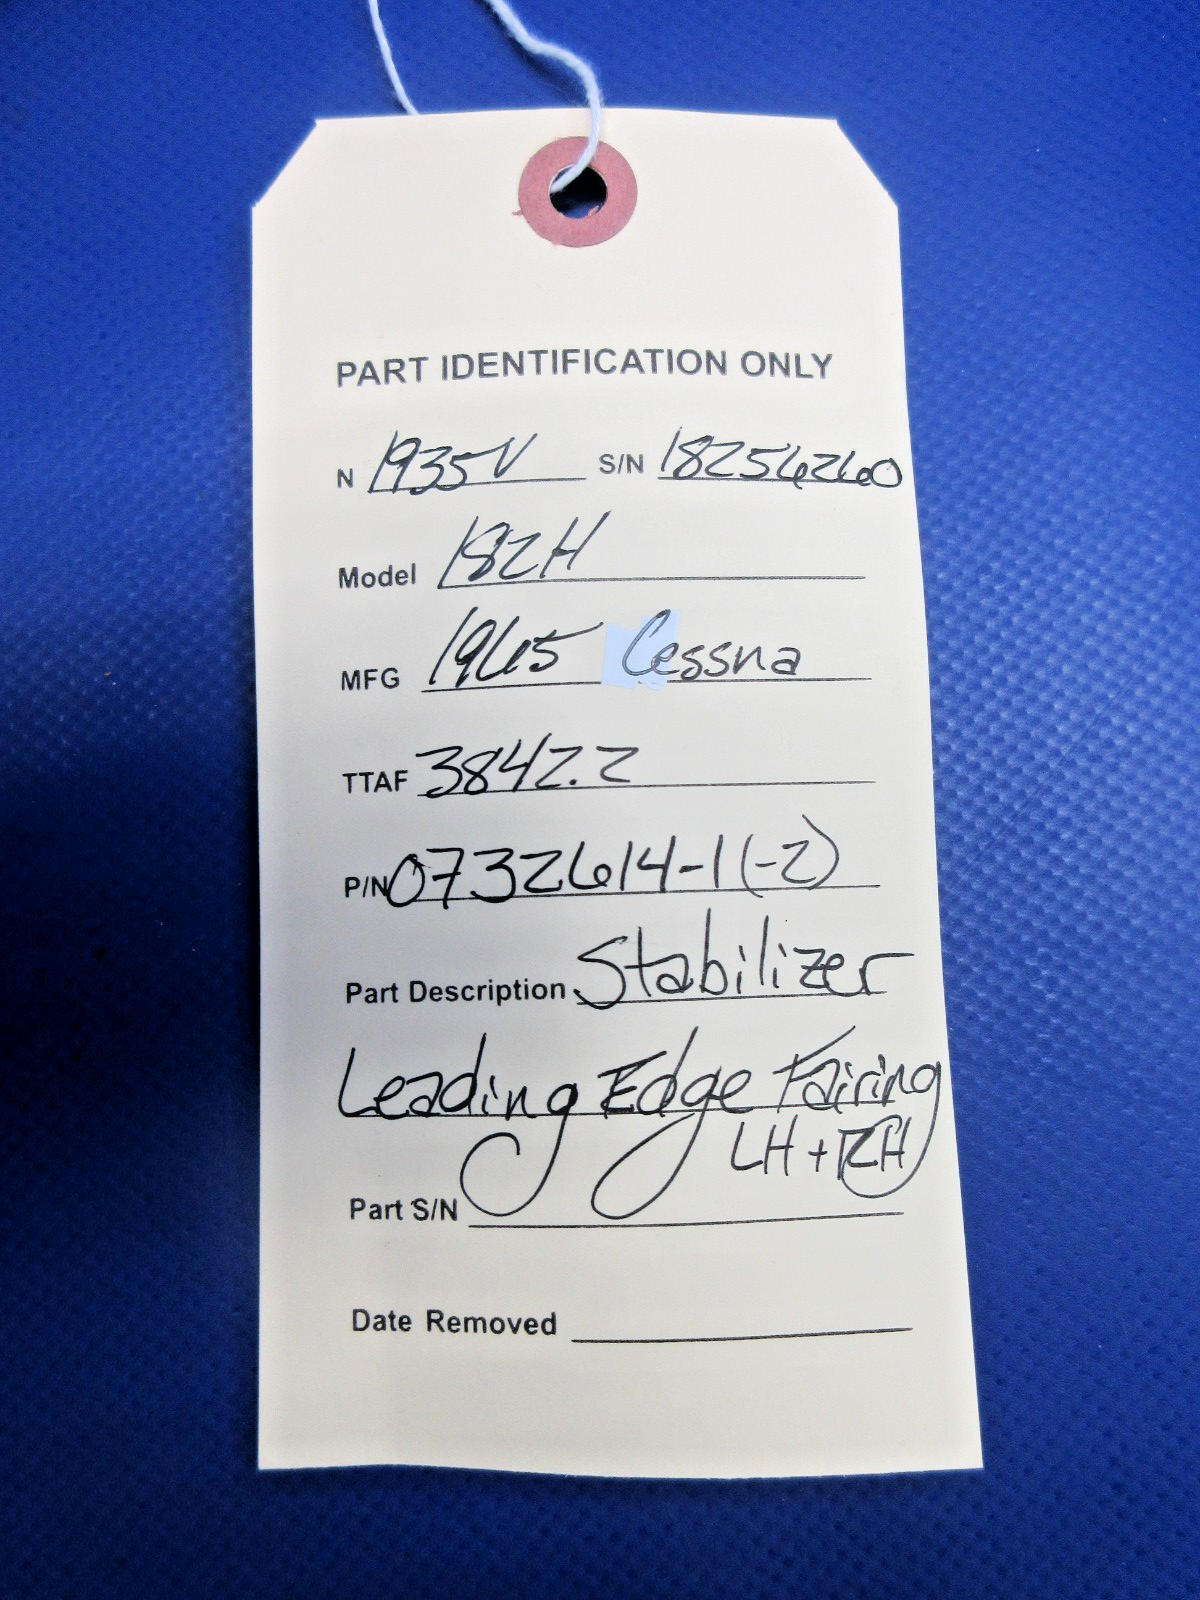 PART IDENTIFICATION ONLY
N 1935V S/N 18256260
Model 182H
MFG 1965 Cessna
TTAF 3842.2
P/N 0732614-1 (-2)
Part Description Stabilizer
Leading Edge Fairing
LH + RH
Part S/N
Date Removed